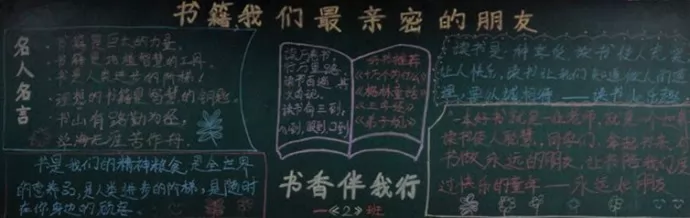 书籍我们最亲密的朋友
名人名言
书籍是巨大的力量。
书籍是改造智慧的工具。
书是人类进步的阶梯！
理想的书籍是智慧的钥匙。
书山有路勤为径，
学海无涯苦作舟。
书是我们的精神粮食是全世界
的营养品，是人类进步的阶梯，是随时
在你身边的
读万卷书
行万里路
读书百遍 其
义自见
读书有三到，
心到，眼到，口到
好书推荐
《十万个为什么》
《格林童话》
《三字经》
《弟子规》
书香伴我行
一《2》班
读书是一种 读书使人充实
让人快乐，读书让我们知道做人的道
理
一本好书就是一位老师，就是一个世界
读书使人聪慧，同学们，拿起书来，与
书做永远的朋友，让书陪我们度
过快乐的童年——永远的朋友